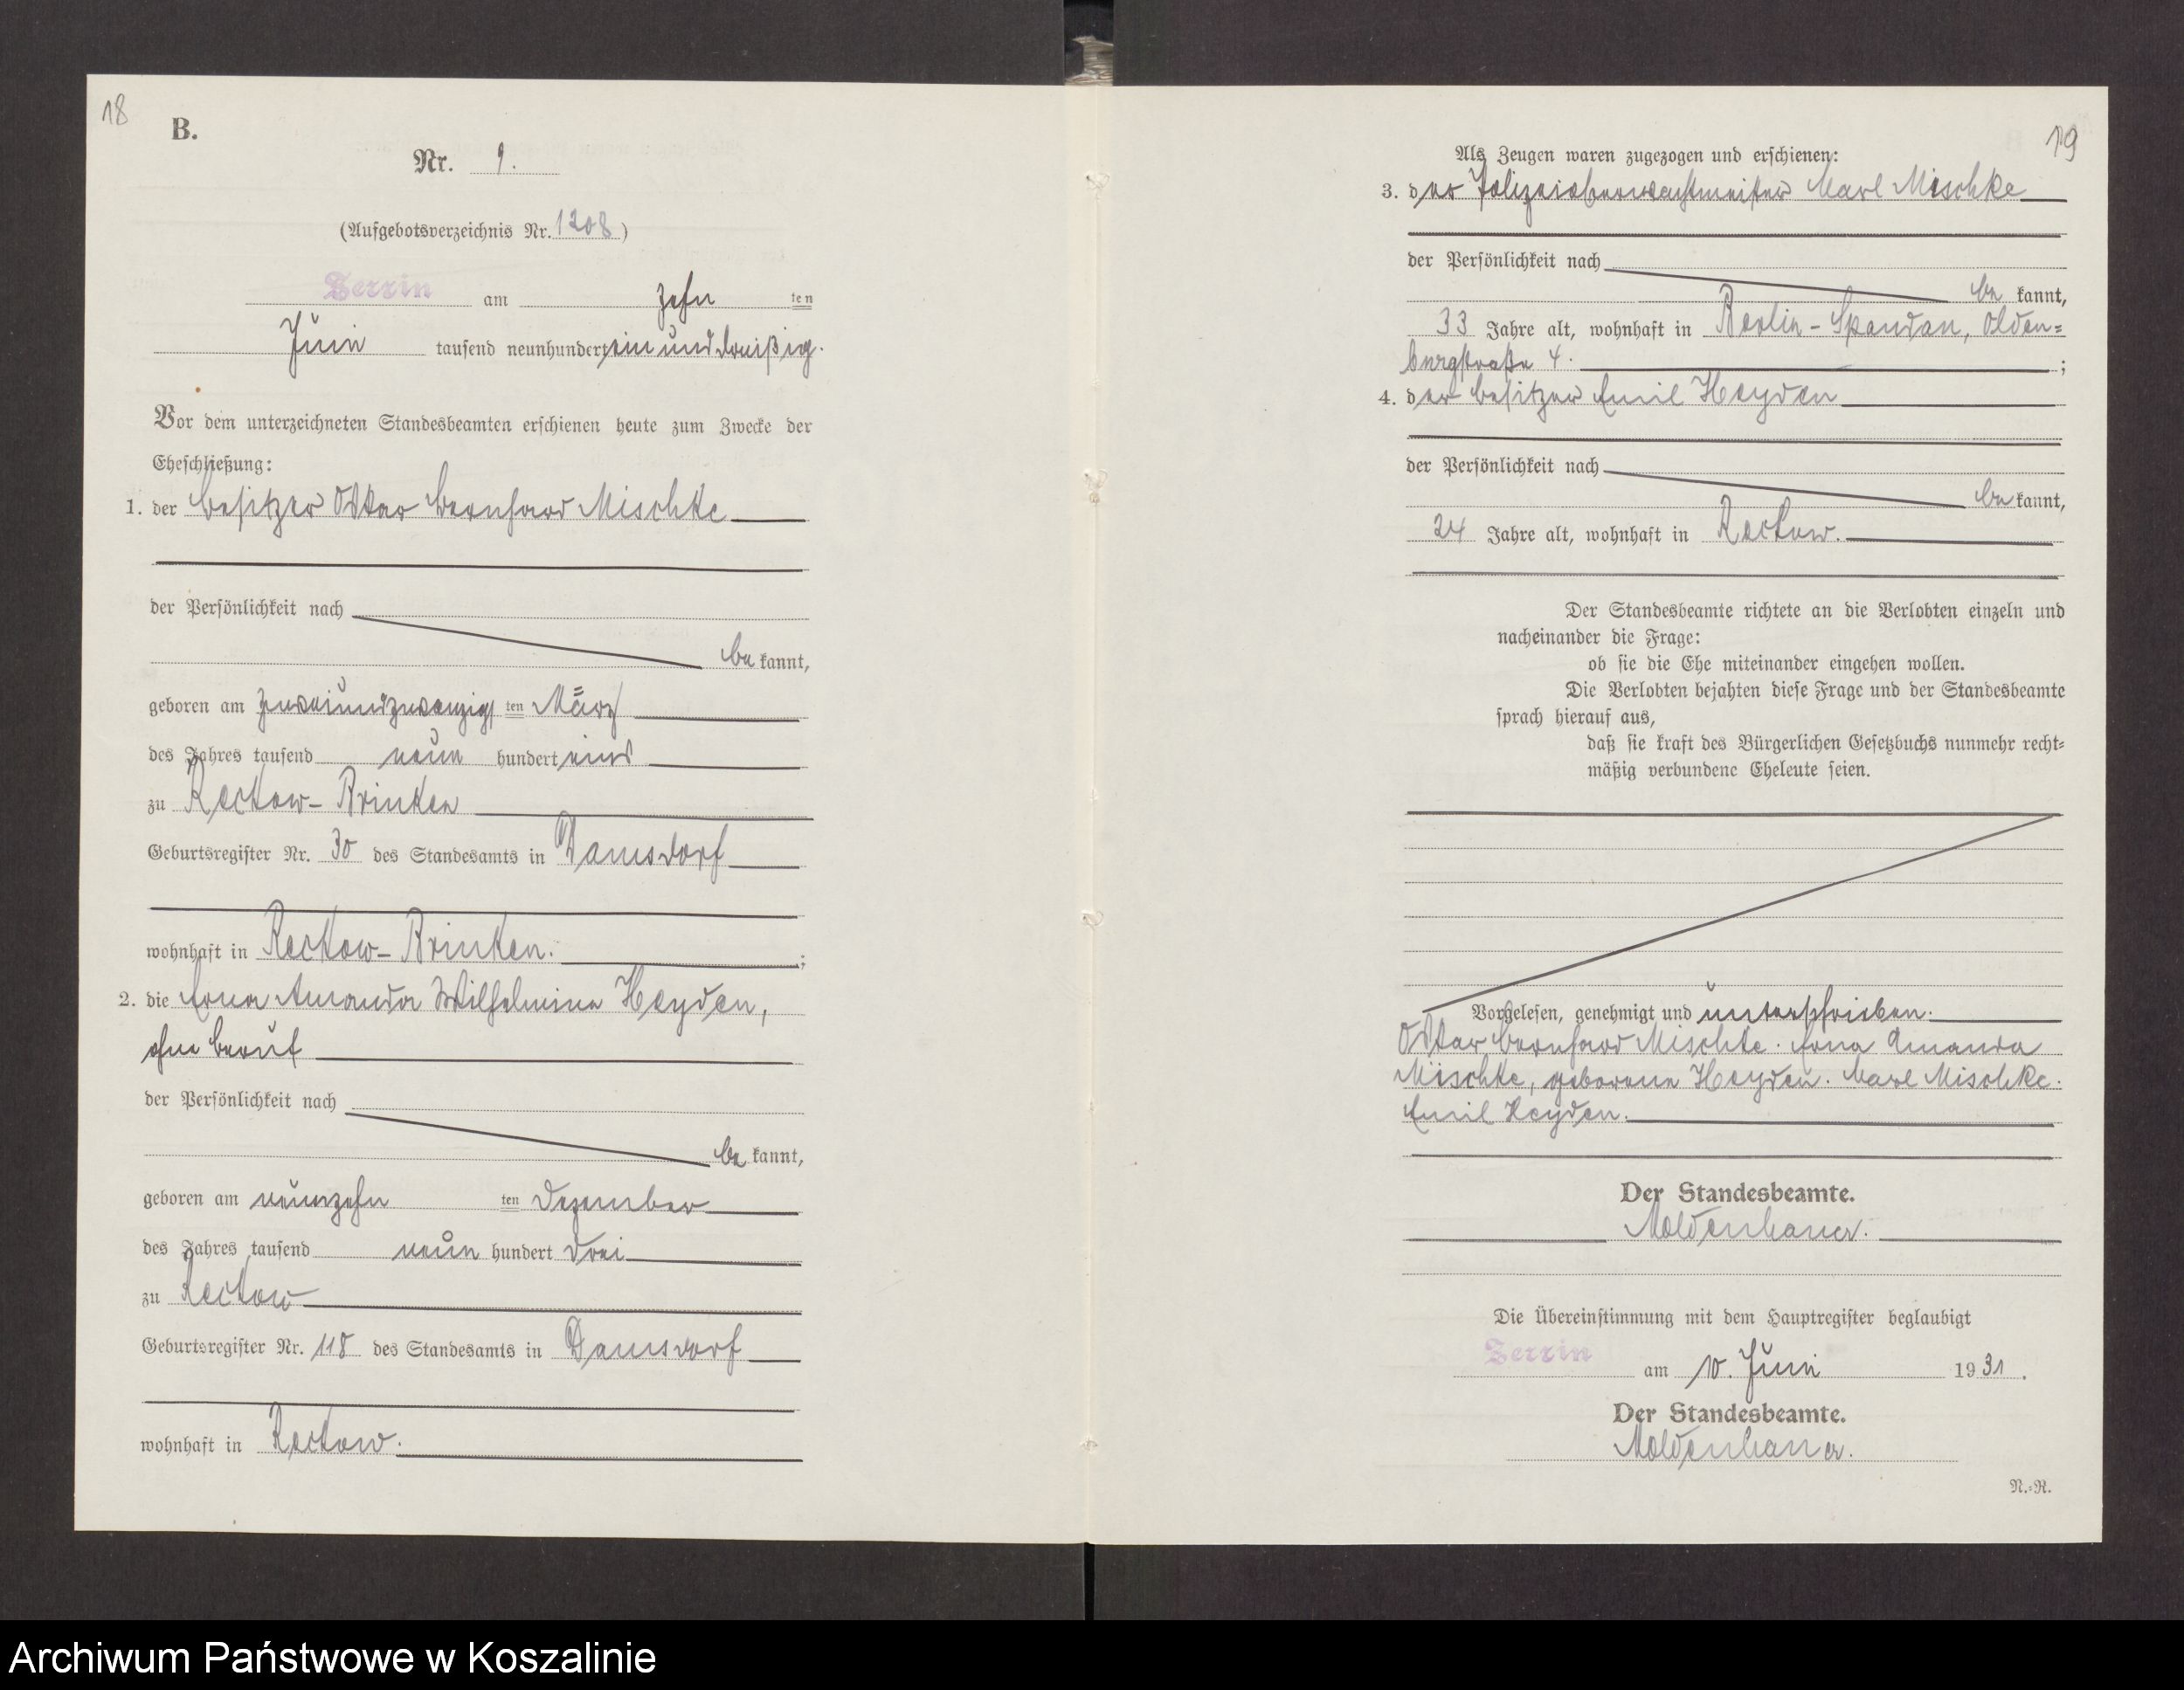 18
B.
Nr. 9.
(Aufgebotsverzeichnis Nr. 1208)
Zerrin am zehn ten
Juni tausend neunhundert einunddreißig.
Vor dem unterzeichneten Standesbeamten erschienen heute zum Zwecke der
Eheschließung:
1. der Besitzer Oskar Bernhard Mischke
der Persönlichkeit nach
be kannt,
geboren am zweiundzwanzig ten März
des Jahres tausend neun hundert eins
zu Reckow-Brinken
Geburtsregister Nr. 30 des Standesamts in Damsdorf
wohnhaft in Reckow-Brinken.;
2. die Erna Amanda Wilhelmine Heyden,
ohne Beruf
der Persönlichkeit nach
be kannt,
geboren am neunzehn ten Dezember
des Jahres tausend neun hundert drei
zu Reckow
Geburtsregister Nr. 118 des Standesamts in Damsdorf
wohnhaft in Reckow.
19
Als Zeugen waren zugezogen und erschienen:
3. der Polizeioberwachtmeister Karl Mischke
der Persönlichkeit nach
be kannt,
33 Jahre alt, wohnhaft in Berlin-Spandau, Olden=
burgstraße 4.;
4. der Besitzer Emil Heyden
der Persönlichkeit nach
be kannt,
24 Jahre alt, wohnhaft in Reckow.
Der Standesbeamte richtete an die Verlobten einzeln und
nacheinander die Frage:
ob sie die Ehe miteinander eingehen wollen.
Die Verlobten bejahten diese Frage und der Standesbeamte
sprach hierauf aus,
daß sie kraft des Bürgerlichen Gesetzbuchs nunmehr recht=
mäßig verbundene Eheleute seien.
Vorgelesen, genehmigt und unterschrieben.
Oskar Bernhard Mischke. Erna Amanda
Mischke, geborene Heyden. Karl Mischke.
Emil Heyden.
Der Standesbeamte.
Moldenhauer.
Die Übereinstimmung mit dem Hauptregister beglaubigt
Zerrin am 10. Juni 1931.
Der Standesbeamte.
Moldenhauer.
N.=R.
Archiwum Państwowe w Koszalinie